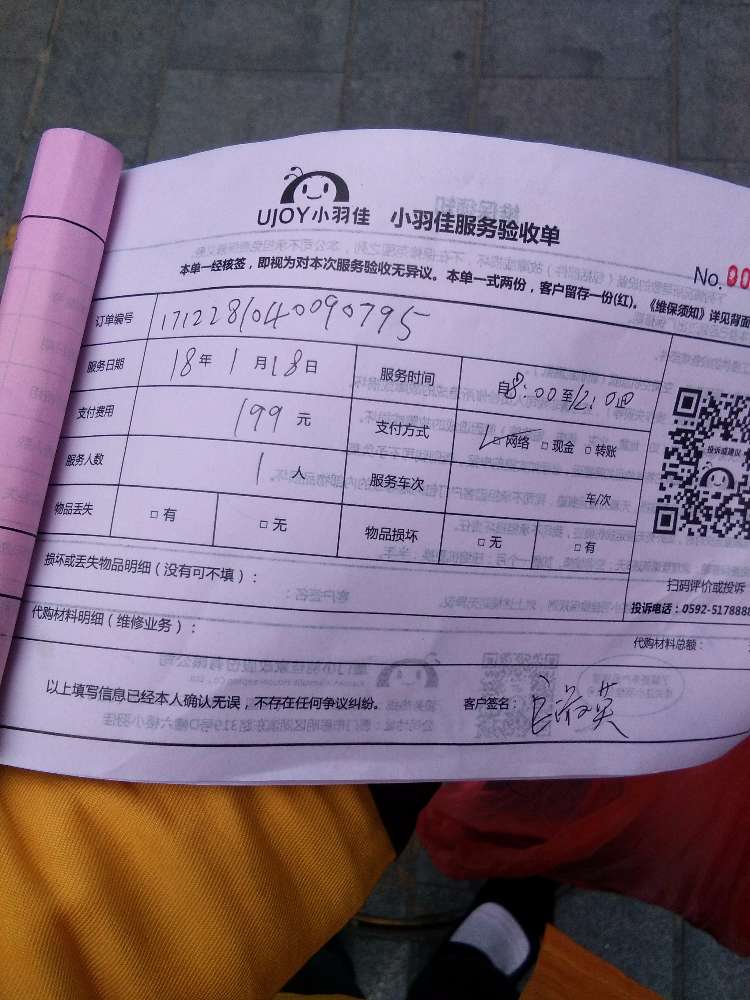 UJOY小羽佳 小羽佳服务验收单
No. 00
本单一经核签，即视为对本次服务验收无异议。本单一式两份，客户留存一份(红)。《维保须知》详见背面
订单编号 1712281040090795
服务日期 18年1月18日 服务时间 自8:00至12:00
支付费用 199元 支付方式 ☑网络 □现金 □转账
服务人数 1人 服务车次 车/次
物品丢失 □有 □无 物品损坏 □无 □有
投诉或建议
扫码评价或投诉
损坏或丢失物品明细（没有可不填）：
投诉电话：0592-5178888
代购材料明细（维修业务）： 代购材料总额：
以上填写信息已经本人确认无误，不存在任何争议纠纷。 客户签名：